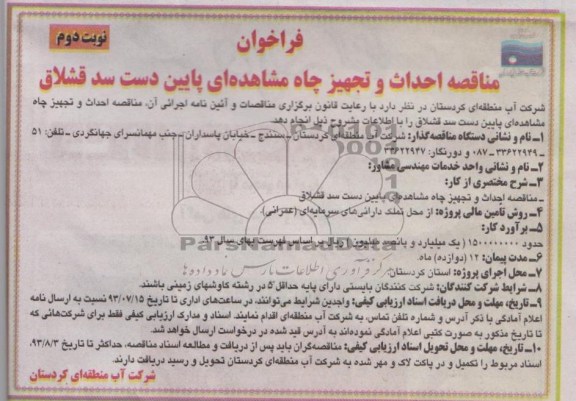 نوبت دوم
فراخوان
مناقصه احداث و تجهیز چاه مشاهده‌ای پایین دست سد قشلاق
شرکت آب منطقه‌ای کردستان در نظر دارد با رعایت قانون برگزاری مناقصات و آئین نامه اجرائی آن، مناقصه احداث و تجهیز چاه
مشاهده‌ای پایین دست سد قشلاق را با اطلاعات بشروح ذیل انجام دهد.
۱ـ نام و نشانی دستگاه مناقصه‌گذار: شرکت آب منطقه‌ای کردستان ـ سنندج ـ خیابان پاسداران ـ جنب مهمانسرای جهانگردی ـ تلفن: ۵۱
ـ ۳۳۶۲۲۹۴۹ ـ ۰۸۷ و دورنگار: ۳۳۶۲۲۹۴۷
۲ـ نام و نشانی واحد خدمات مهندسی مشاور:
۳ـ شرح مختصری از کار:
ـ مناقصه احداث و تجهیز چاه مشاهده‌ای پایین دست سد قشلاق
۴ـ روش تامین مالی پروژه: از محل تملک دارائی‌های سرمایه‌ای (عمرانی)
۵ـ برآورد کار:
حدود ۱۵۰۰۰۰۰۰۰۰ (یک میلیارد و پانصد میلیون) ریال بر اساس فهرست بهای سال ۹۳
۶ـ مدت پیمان: ۱۲ (دوازده) ماه.
۷ـ محل اجرای پروژه: استان کردستان
۸ـ شرایط شرکت کنندگان: شرکت کنندگان بایستی دارای پایه حداقل ۵ در رشته کاوشهای زمینی باشند.
۹ـ تاریخ، مهلت و محل دریافت اسناد ارزیابی کیفی: واجدین شرایط می‌توانند، در ساعت‌های اداری تا تاریخ ۹۳/۰۷/۱۵ نسبت به ارسال نامه
اعلام آمادگی با ذکر آدرس و شماره تلفن تماس، به شرکت آب منطقه‌ای اقدام نمایند. اسناد و مدارک ارزیابی کیفی فقط برای شرکت‌هائی که
تا تاریخ مذکور به صورت کتبی اعلام آمادگی نموده‌اند به آدرس قید شده در درخواست ارسال خواهد شد.
۱۰ـ تاریخ، مهلت و محل تحویل اسناد ارزیابی کیفی: مناقصه‌گران باید پس از دریافت و مطالعه اسناد مناقصه، حداکثر تا تاریخ ۹۳/۸/۳،
اسناد مربوط را تکمیل و در پاکت لاک و مهر شده به شرکت آب منطقه‌ای کردستان تحویل و رسید دریافت دارند.
شرکت آب منطقه‌ای کردستان
ParsNamadData
مرکز فرآوری اطلاعات پارس نماد داده‌ها